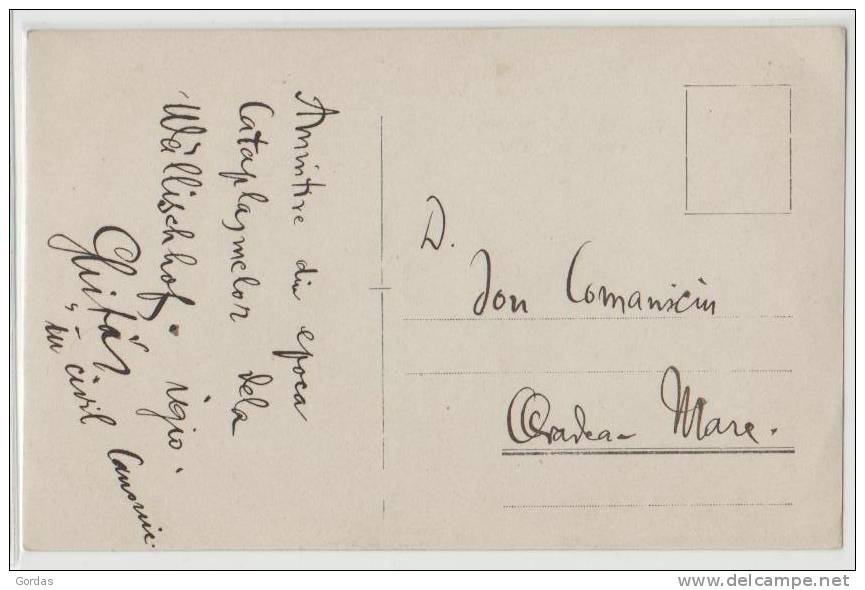 Amintire din epoca
Cataplasmelor dela
Wällischhof.
Ghiță
"în civil"
D.
Ion Comanici
Oradea-Mare.
Gordas
delcampe.net